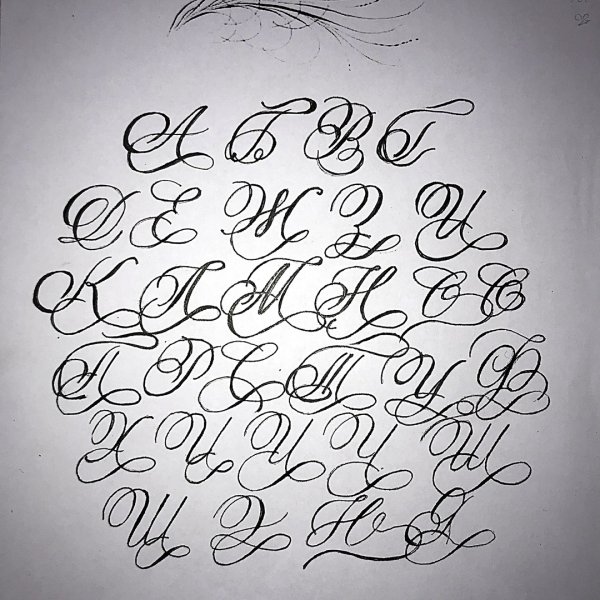 А Б В Г
Д Е Ж З И
К Л М Н О О
П Р С Т У Ф
Х Ц Ч Ч Ш
Щ Э Ю Я